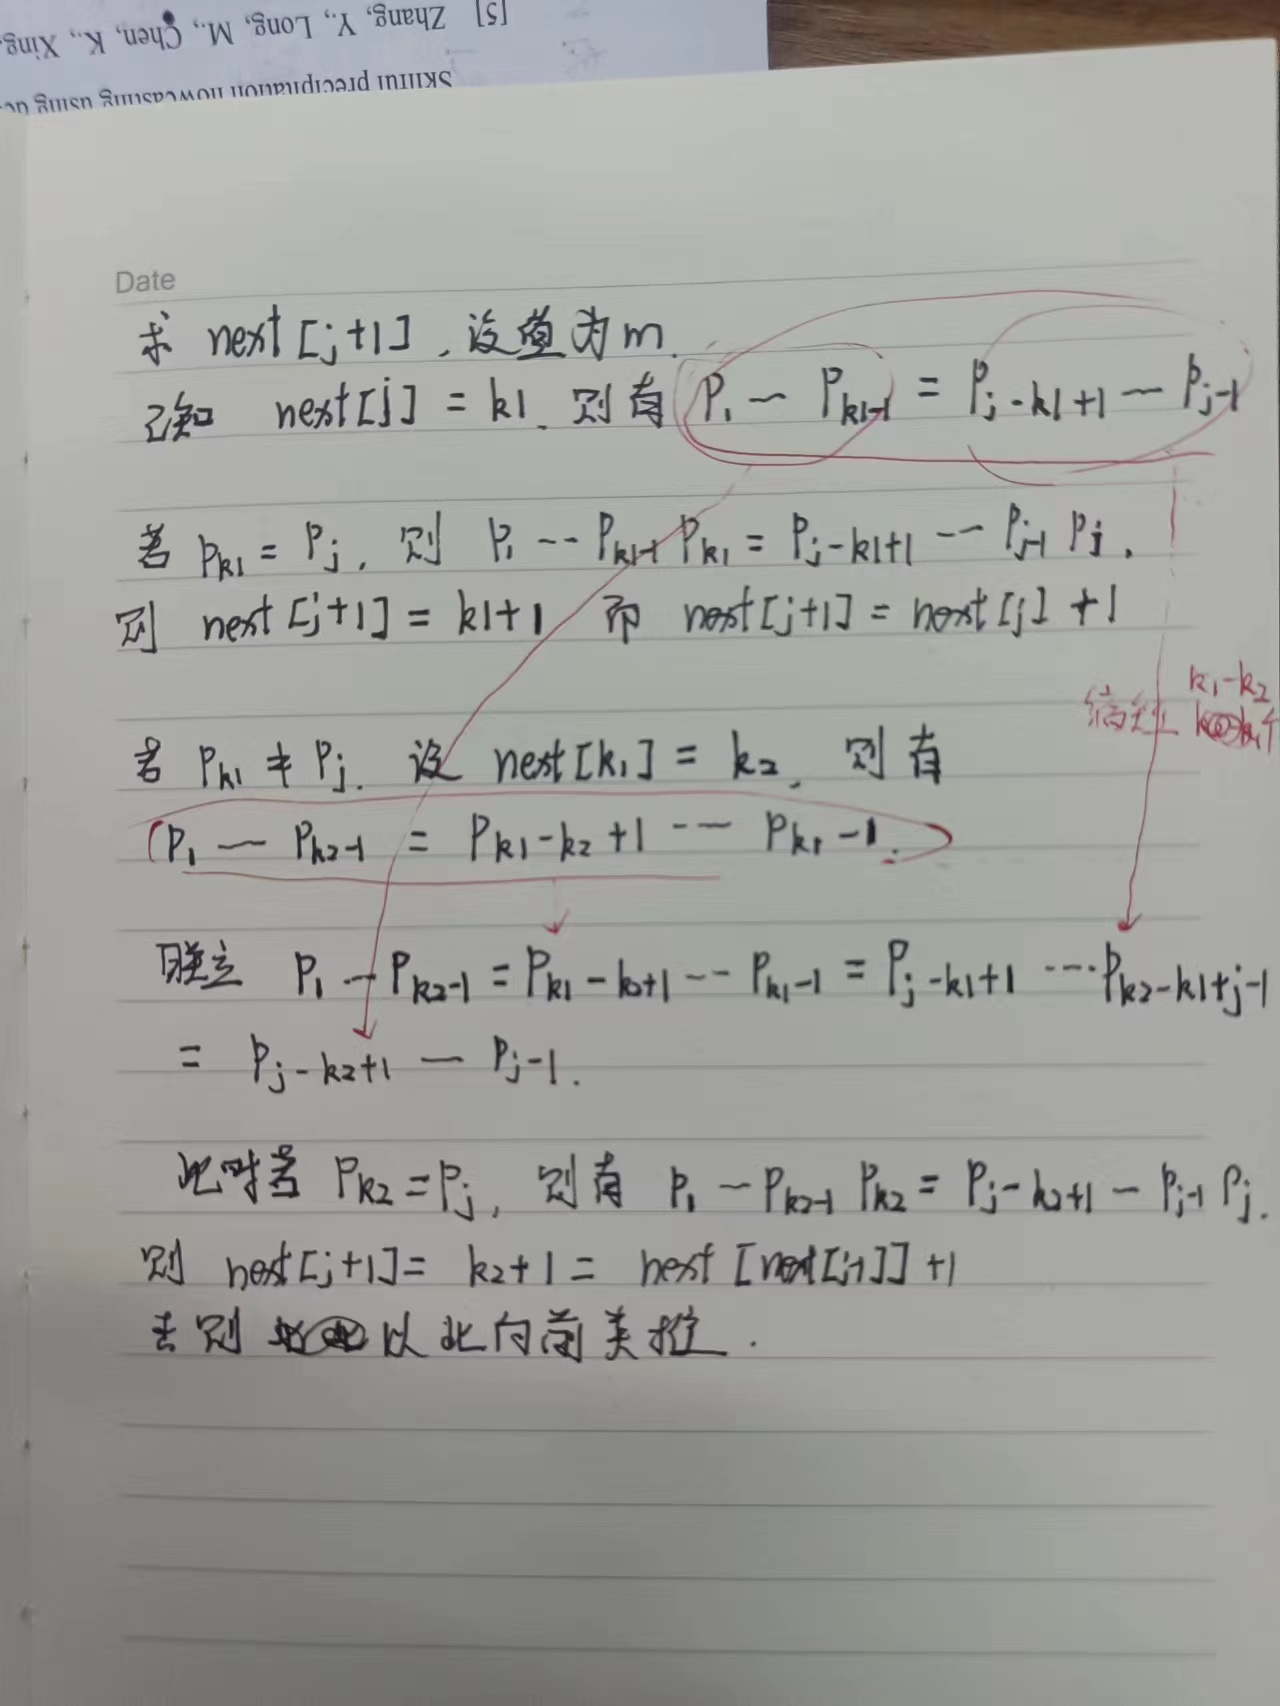 [5] Zhang, Y., Long, M., Chen, K., Xing,
Skilful precipitation nowcasting using de
Date
求 next[j+1],设值为m.
已知 next[j] = k1. 则有 P1 — Pk1-1 = Pj-k1+1 — Pj-1
若 Pk1 = Pj, 则 P1 -- Pk1-1 Pk1 = Pj-k1+1 -- Pj-1 Pj.
则 next[j+1] = k1+1 而 next[j+1] = next[j] +1
缩短 k1-k2
若 Pk1 ≠ Pj. 设 next[k1] = k2. 则有
(P1 — Pk2-1 = Pk1-k2+1 -- Pk1-1.)
联立 P1 — Pk2-1 = Pk1-k2+1 -- Pk1-1 = Pj-k1+1 ---- Pk2-k1+j-1
= Pj-k2+1 — Pj-1.
此时若 Pk2 = Pj, 则有 P1 — Pk2-1 Pk2 = Pj-k2+1 — Pj-1 Pj.
则 next[j+1] = k2+1 = next[next[j]] +1
否则 以此向前类推.